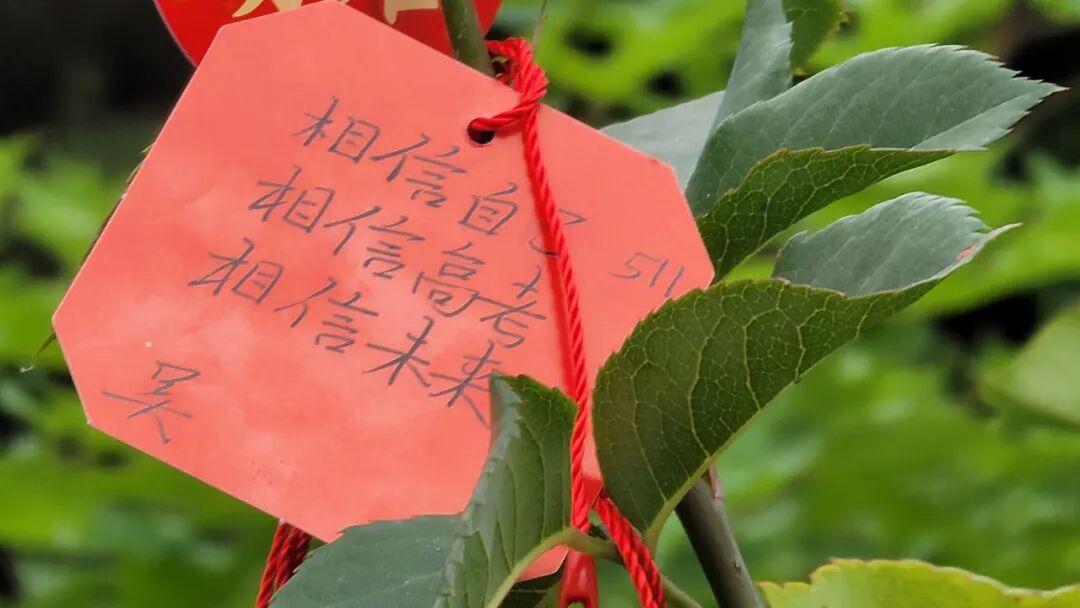 相信自己
相信高考 511
相信未来
吴